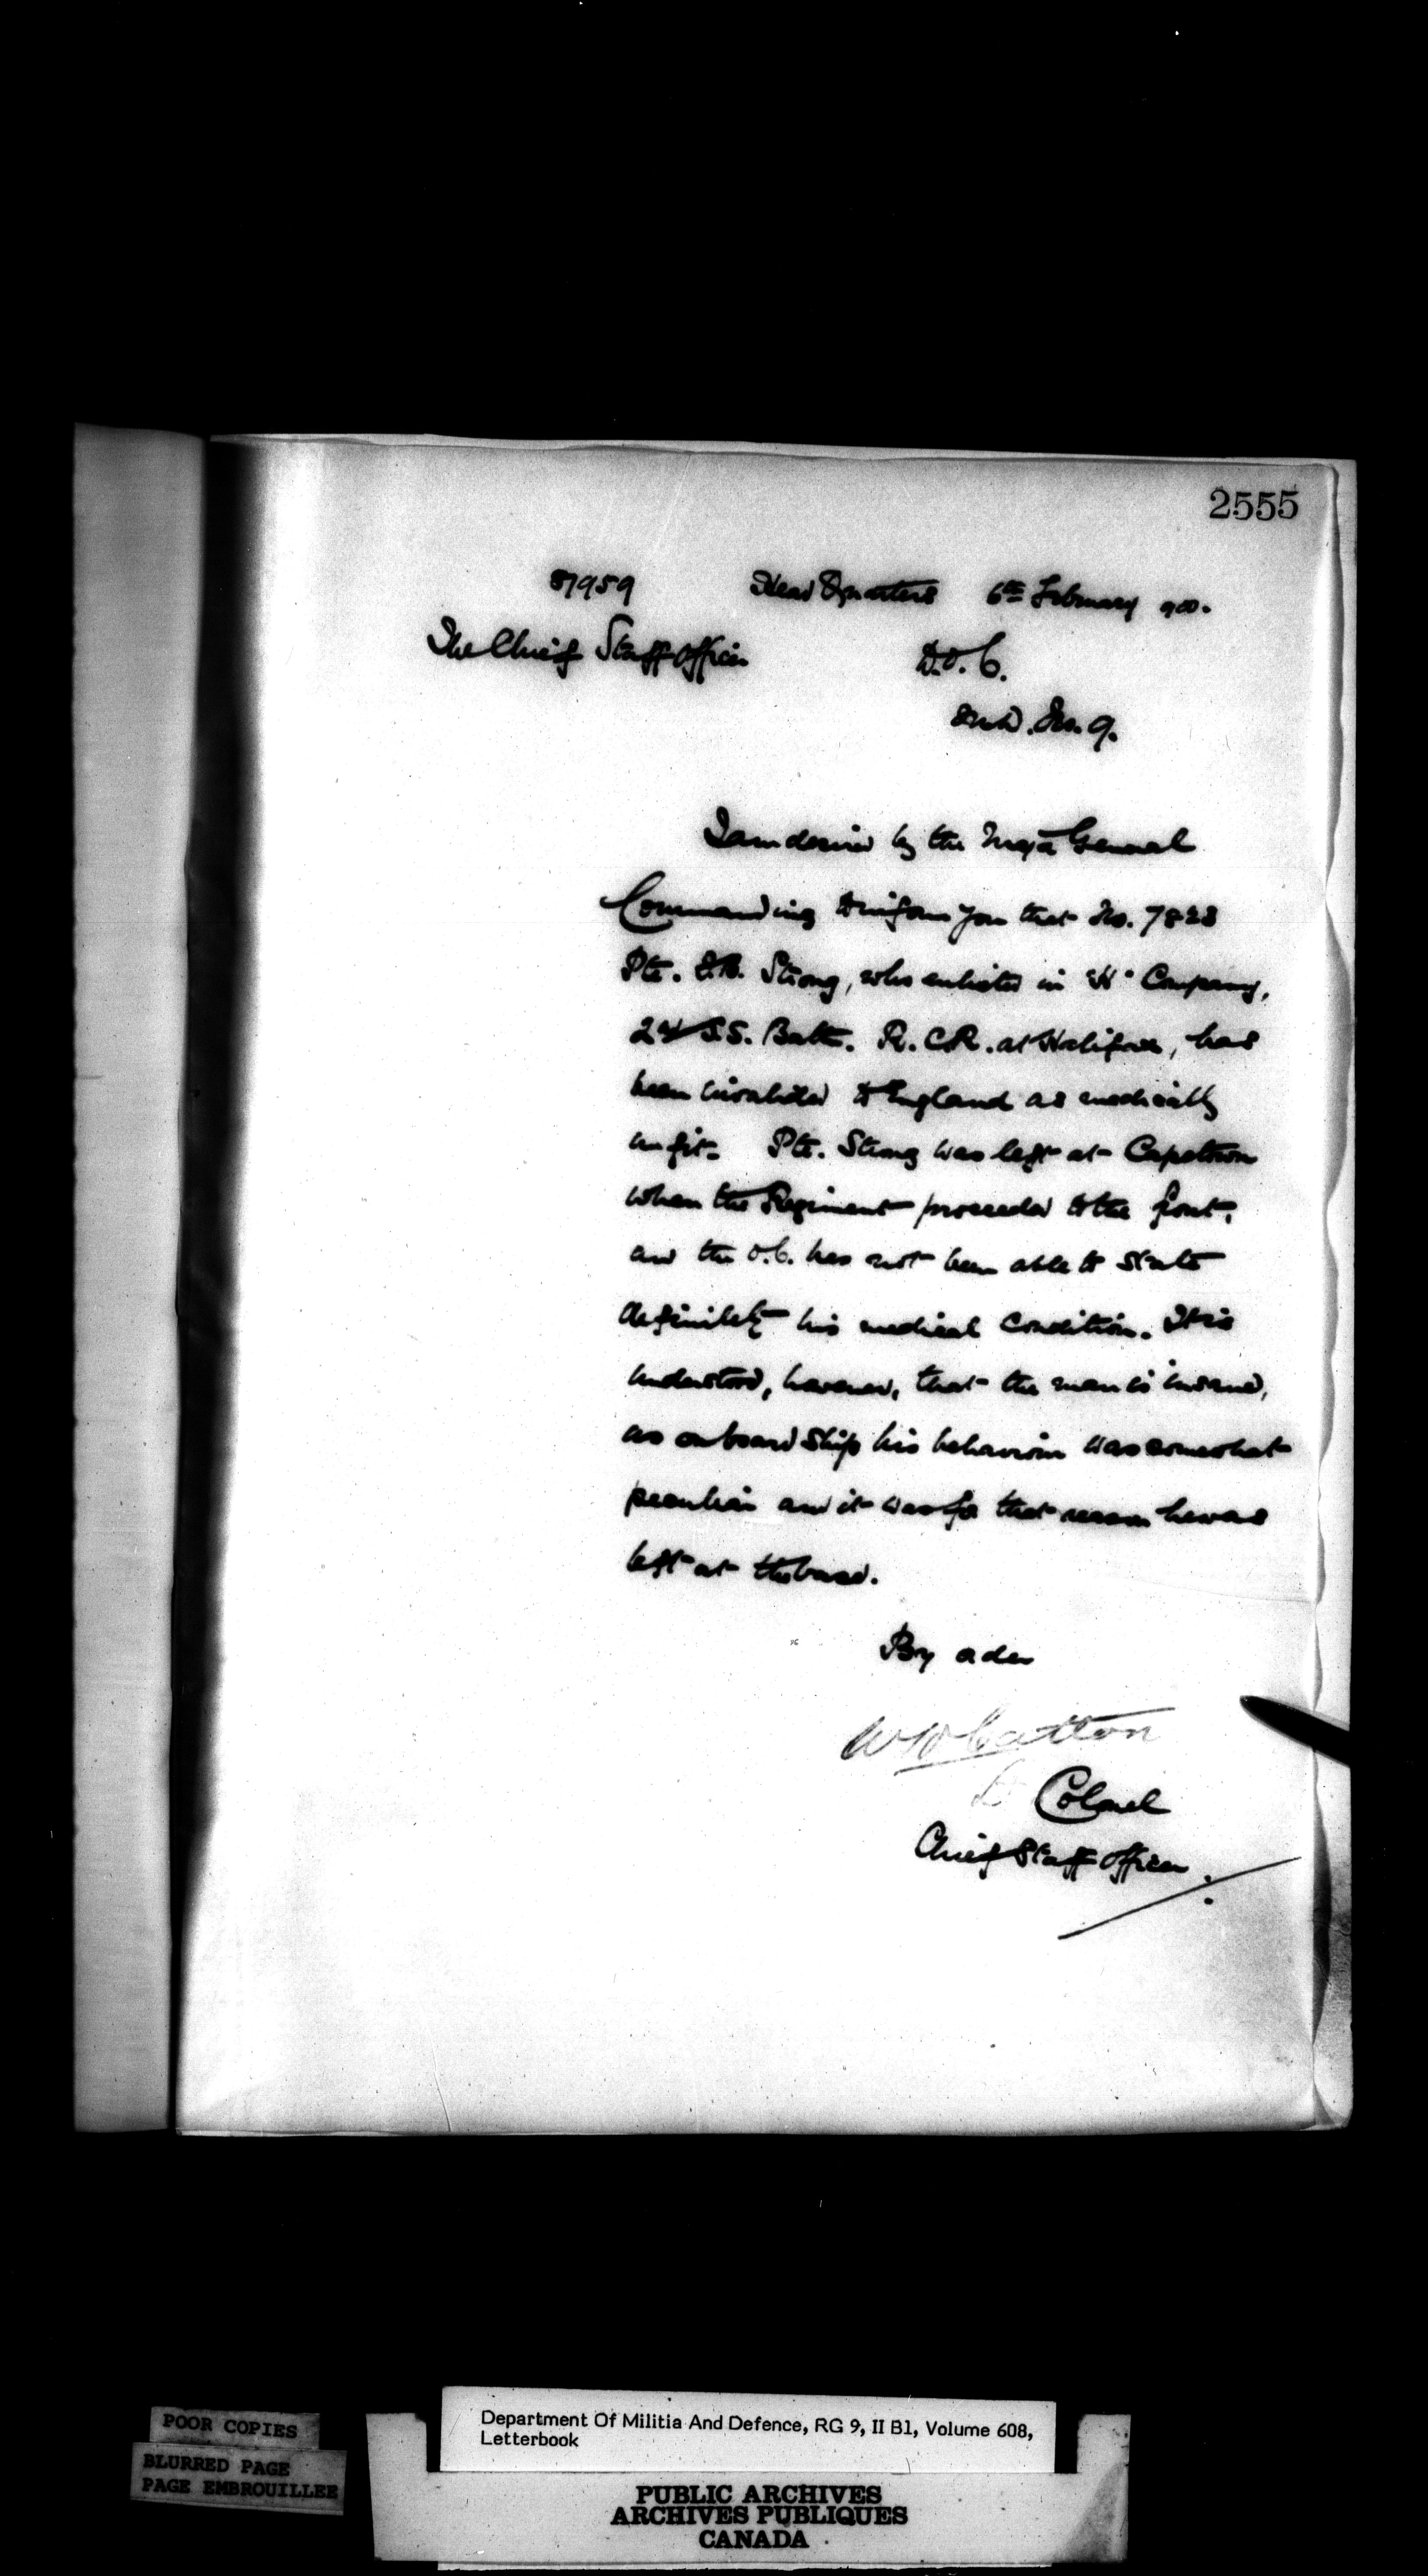 2555
87959 Head Quarters 6th February 900.
The Chief Staff Officer D.O.C.
Mil. Dis. No. 9.
I am desired by the Major General
Commanding to inform you that No. 7823
Pte. Strong, who enlisted in "H" Company,
2nd S.S. Batt. R.C.R. at Halifax, has
been invalided to England as medically
unfit. Pte. Strong was left at Capetown
when the Regiment proceeded to the front,
and the O.C. has not been able to state
definitely his medical condition. It is
understood, however, that the man is insane,
as on board ship his behaviour was somewhat
peculiar and it was for that reason he was
left at the base.
By order
Lt Colonel
Chief Staff Officer.
POOR COPIES
BLURRED PAGE
PAGE EMBROUILLEE
Department Of Militia And Defence, RG 9, II B1, Volume 608,
Letterbook
PUBLIC ARCHIVES
ARCHIVES PUBLIQUES
CANADA